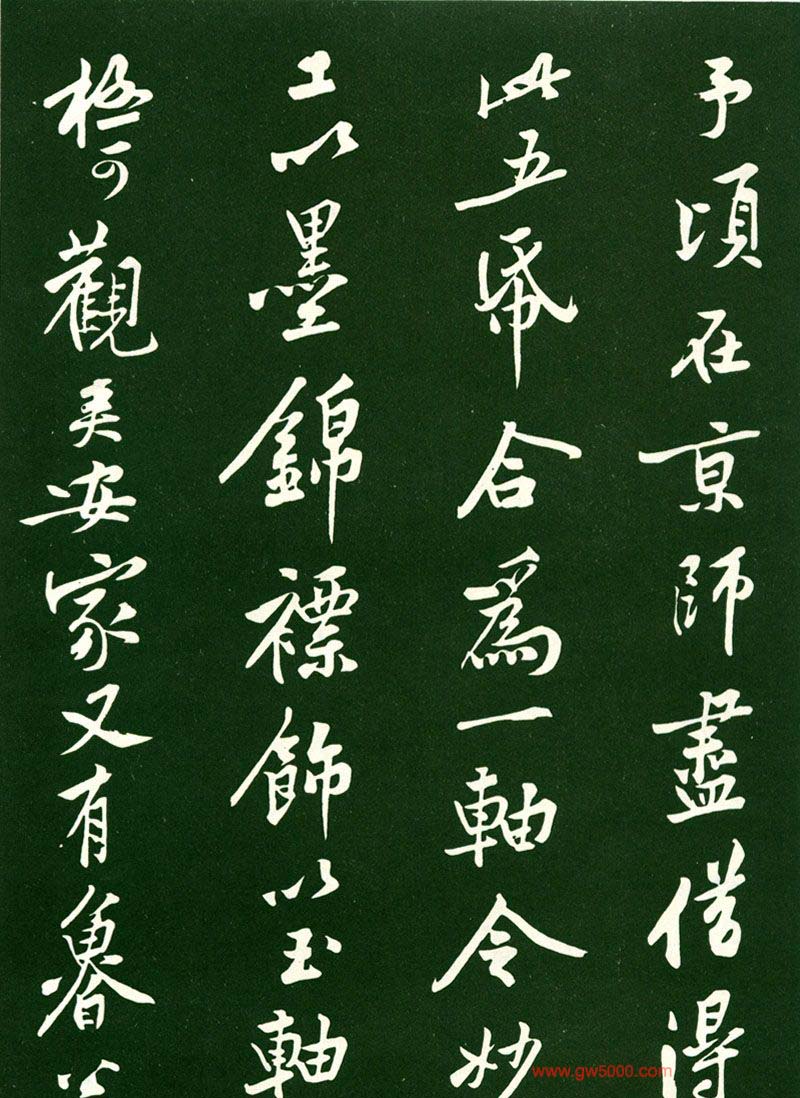 予頃在京師盡借得
此五帋合爲一軸令妙
工以墨錦褾飾以玉軸
極可觀吏安家又有魯公
www.gw5000.com